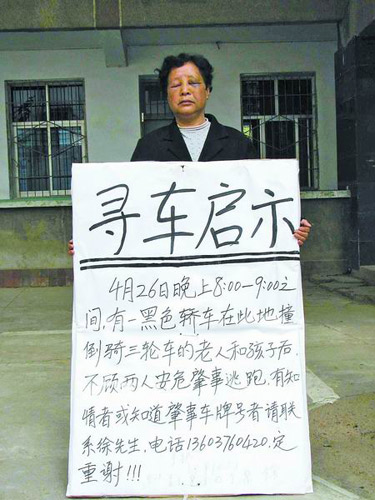 寻车启示
4月26日晚上8:00-9:00之
间,有一黑色轿车在此地撞
倒骑三轮车的老人和孩子后,
不顾两人安危肇事逃跑,有知
情者或知道肇事车牌号者请联
系徐先生,电话13603760420,定
重谢!!!